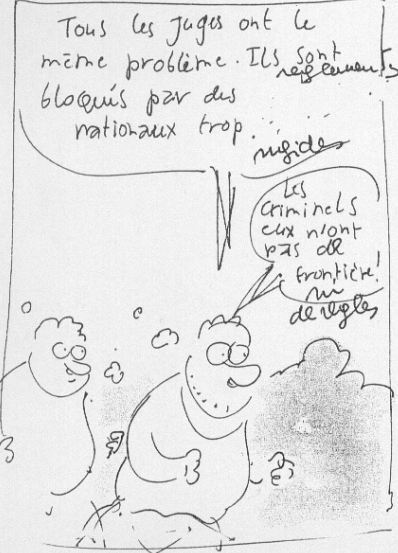 Tous les juges ont le
même problème. Ils sont
règlements
bloqués par des
nationaux trop...
rigides
Les
criminels
eux n'ont
pas de
frontière!
ni
de règles